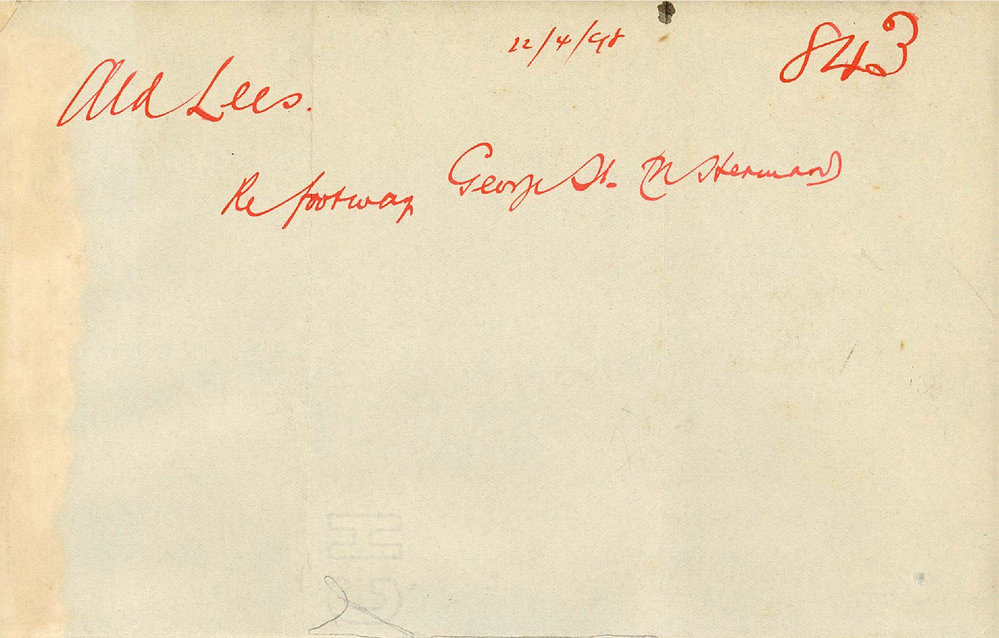 12/4/98
843
Ald Lees.
Re footway George St. N